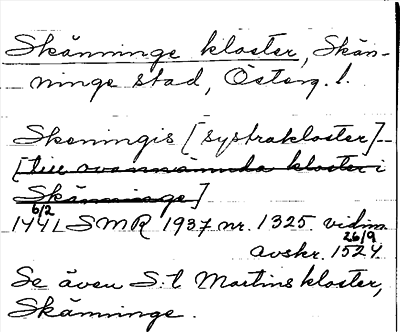 Skänninge kloster, Skän-
ninge stad, Österg. l.
Skeningis [systrakloster]
[till ovannämnda kloster i
Skänninge]
6/2
1441 SMR 1937 nr. 1325 vidim.
26/9
avskr. 1524.
Se även S:t Martins kloster,
Skänninge.